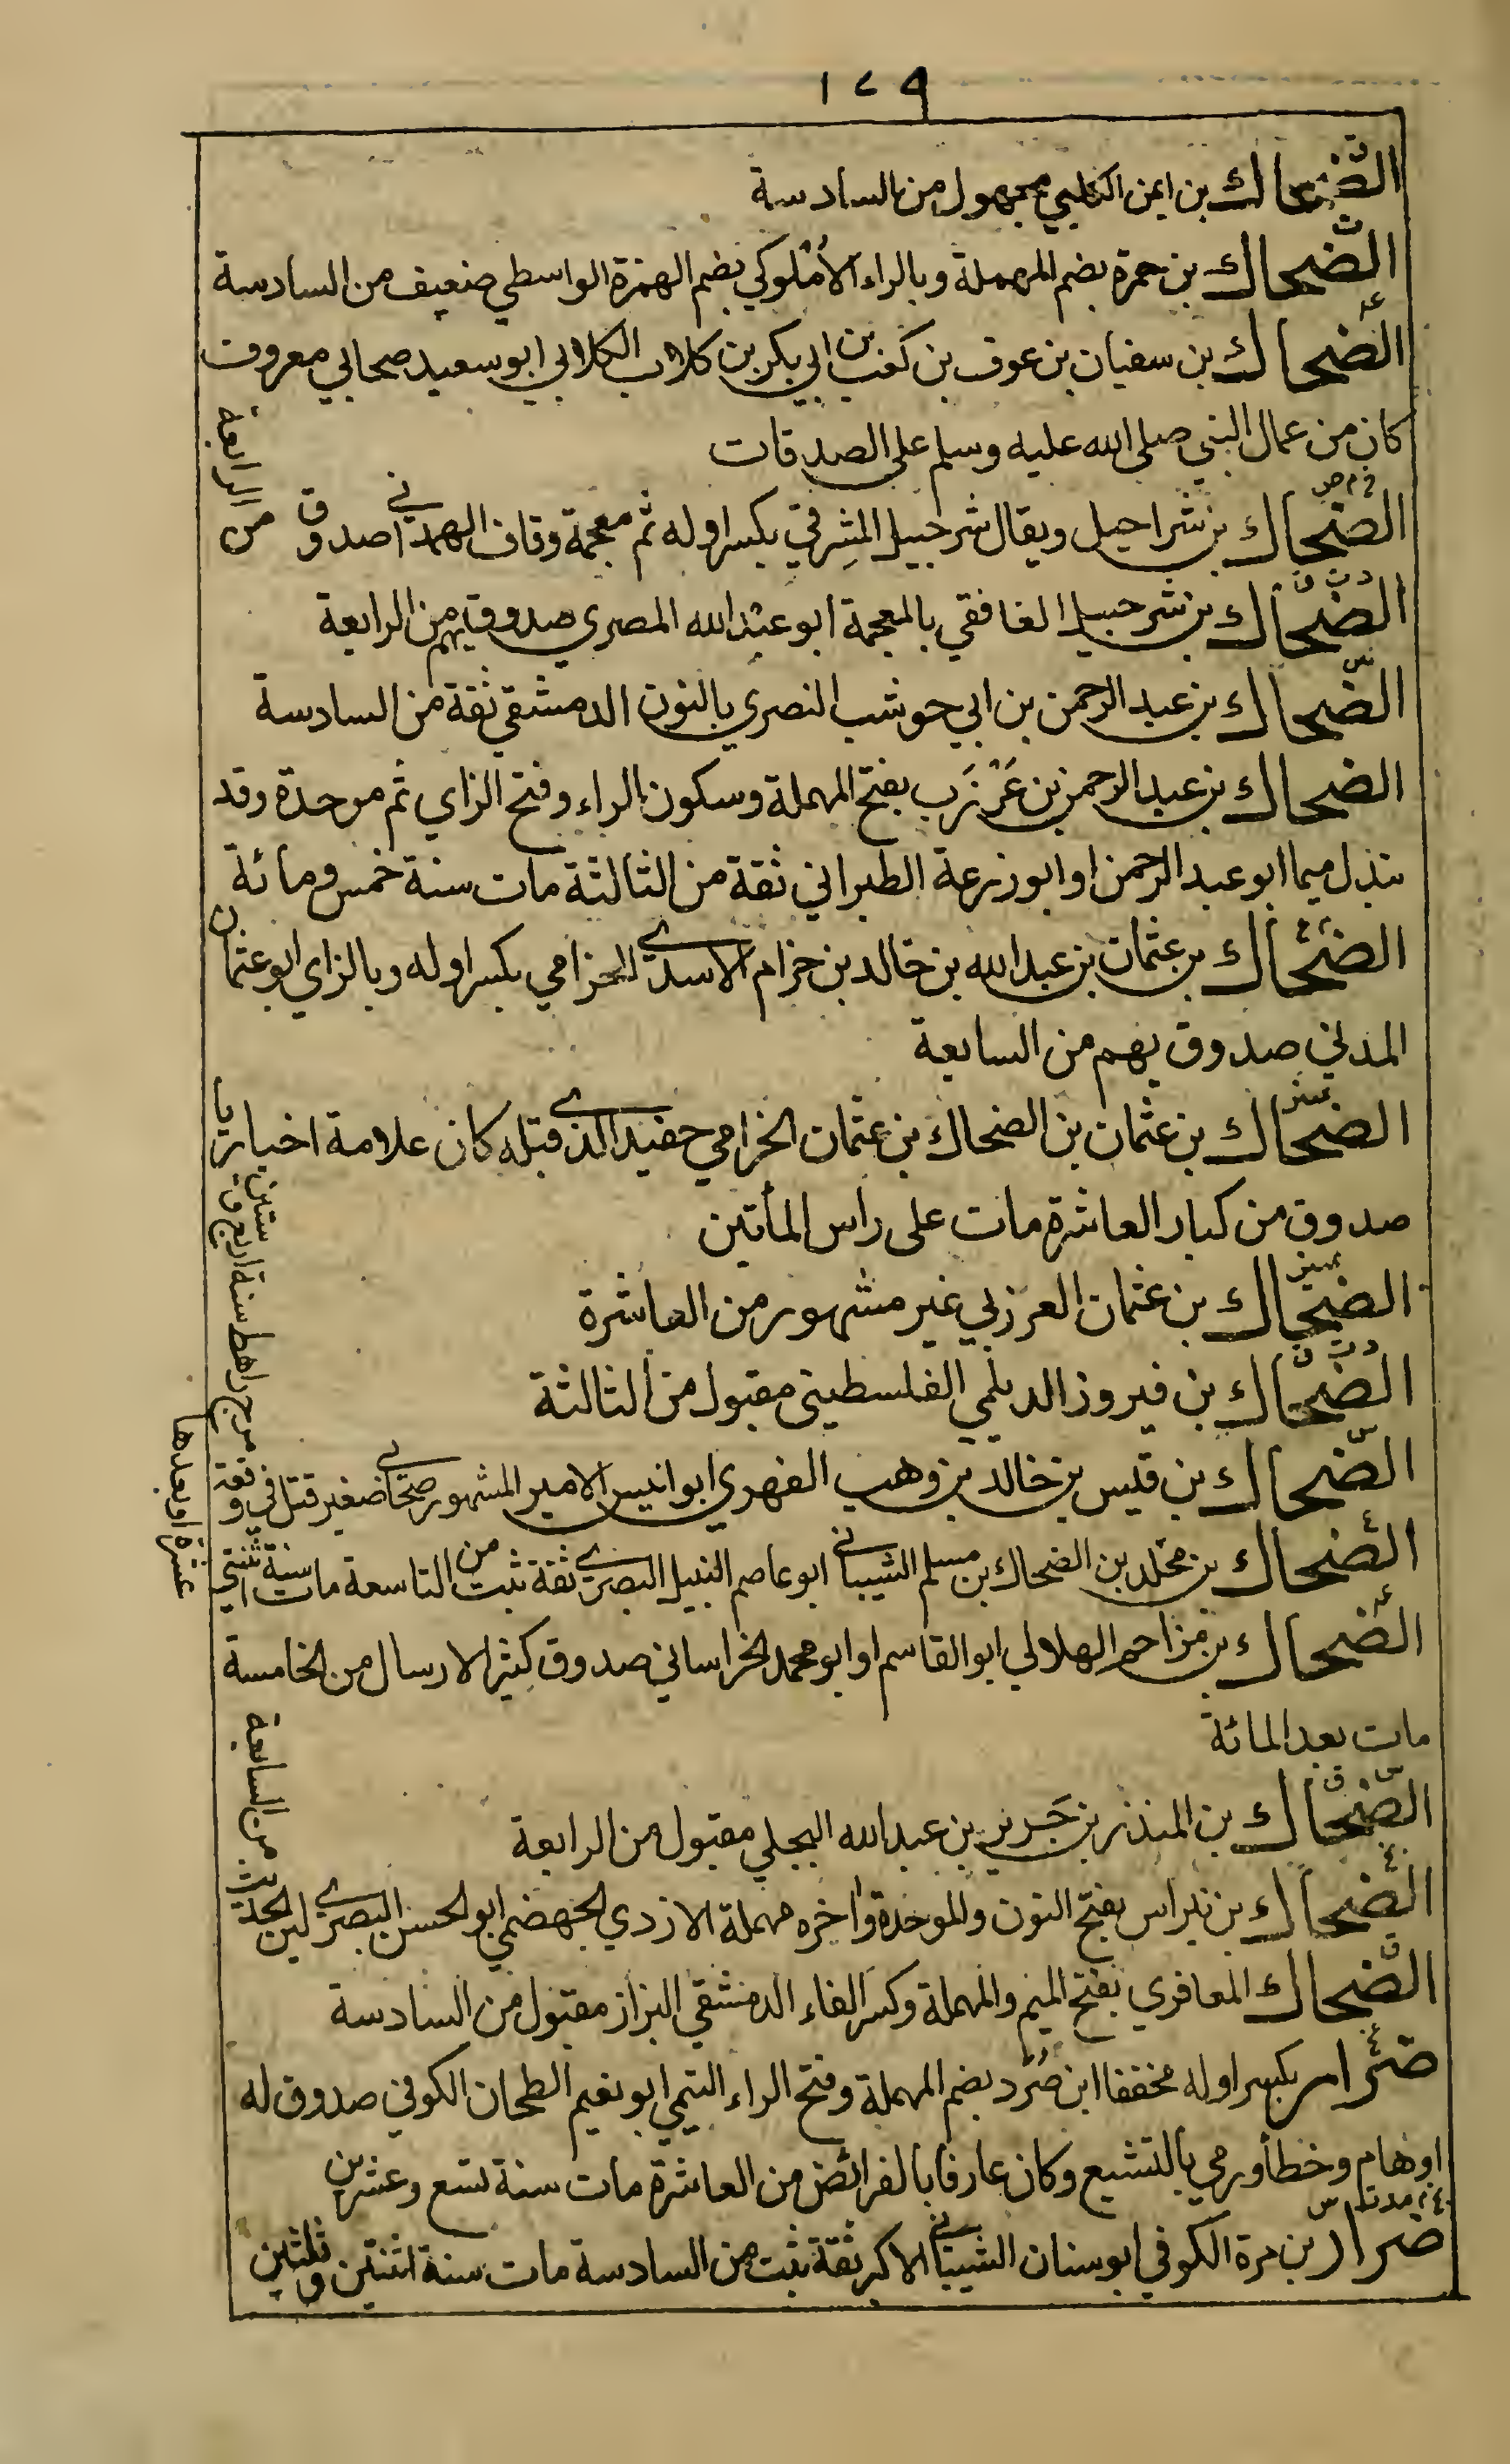 ١٧٩
الضحاك بن ايمن الكلبي مجهول من السادسة
الضحاك بن حمرة بضم المهملة وبالراء الأُمْلوكي بضم الهمزة الواسطي ضعيف من السادسة
الضحاك بن سفيان بن عوف بن كعب بن ابي بكر بن كلاب الكلابي ابو سعيد صحابي معروف
كان من عمال النبي صلى الله عليه وسلم على الصدقات
الضحاك بن شراحيل ويقال شرحبيل المِشرقي بكسر اوله ثم معجمة وقاف الهمداني صدوق من الرابعة
الضحاك بن شرحبيل الغافقي بالمعجمة ابو عبد الله المصري صدوق يهم من الرابعة
الضحاك بن عبد الرحمن بن ابي حوشب النصري بالنون الدمشقي ثقة من السادسة
الضحاك بن عبد الرحمن بن عَرْزَب بفتح المهملة وسكون الراء وفتح الزاي ثم موحدة وقد
تبدل ميما ابو عبد الرحمن او ابو زرعة الطبراني ثقة من الثالثة مات سنة خمس ومائة
الضحاك بن عثمان بن عبد الله بن خالد بن حزام الاسدي الحزامي بكسر اوله وبالزاي ابو عثمان
المدني صدوق يهم من السابعة
الضحاك بن عثمان بن الضحاك بن عثمان الحزامي حفيد الذي قبله كان علامة اخباريا
صدوق من كبار العاشرة مات على راس المأتين
الضحاك بن عثمان العرزبي غير مشهور من العاشرة
الضحاك بن فيروز الديلمي الفلسطيني مقبول من الثالثة
الضحاك بن قيس بن خالد بن وهب الفهري ابو انيس الامير المشهور صحابي صغير قتل في وقعة مرج راهط سنة اربع و ستين
الضحاك بن مخلد بن الضحاك بن مسلم الشيباني ابو عاصم النبيل البصري ثقة ثبت من التاسعة مات سنة ثنتي عشرة او بعدها
الضحاك بن مزاحم الهلالي ابو القاسم او ابو محمد الخراساني صدوق كثير الارسال من الخامسة
مات بعد المائة
الضحاك بن المنذر بن جَرير بن عبد الله البجلي مقبول من الرابعة
الضحاك بن نبراس بفتح النون والموحدة واخره مهملة الازدي الجهضمي ابو الحسن البصري لين الحديث من السابعة
الضحاك المعافري بفتح الميم والمهملة وكسر الفاء الدمشقي البزاز مقبول من السادسة
ضرار بكسر اوله مخففا ابن صُرَد بضم المهملة وفتح الراء التيمي ابو نعيم الطحان الكوفي صدوق له
اوهام وخطأ ورمي بالتشيع وكان عارفا بالفرائض من العاشرة مات سنة تسع وعشرين
ضرار بن مرة الكوفي ابو سنان الشيباني الاكبر ثقة ثبت من السادسة مات سنة اثنتين وثلثين